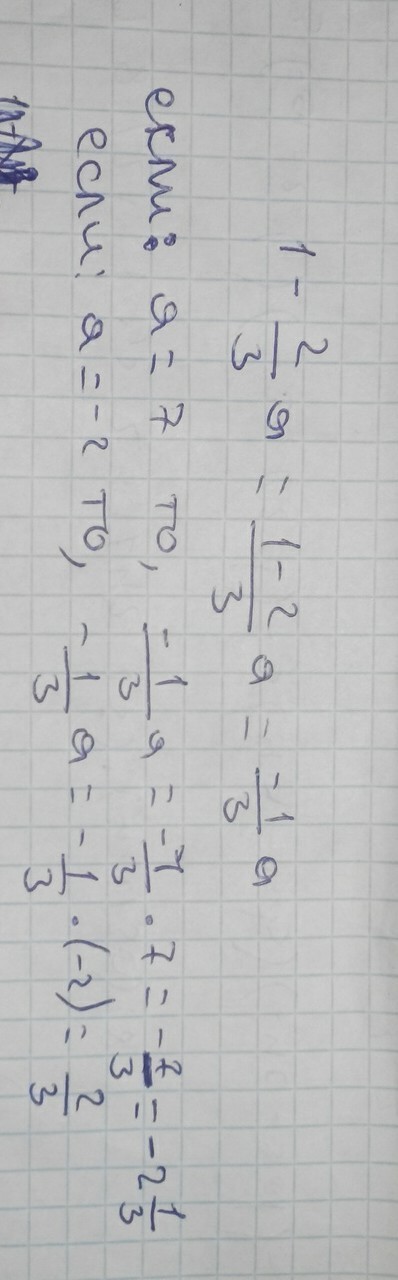 1 - 2/3 a = (1-2)/3 a = -1/3 a
если: a = 7 то, -1/3 a = -1/3 · 7 = -7/3 = -2 1/3
если: a = -2 то, -1/3 a = -1/3 · (-2) = 2/3